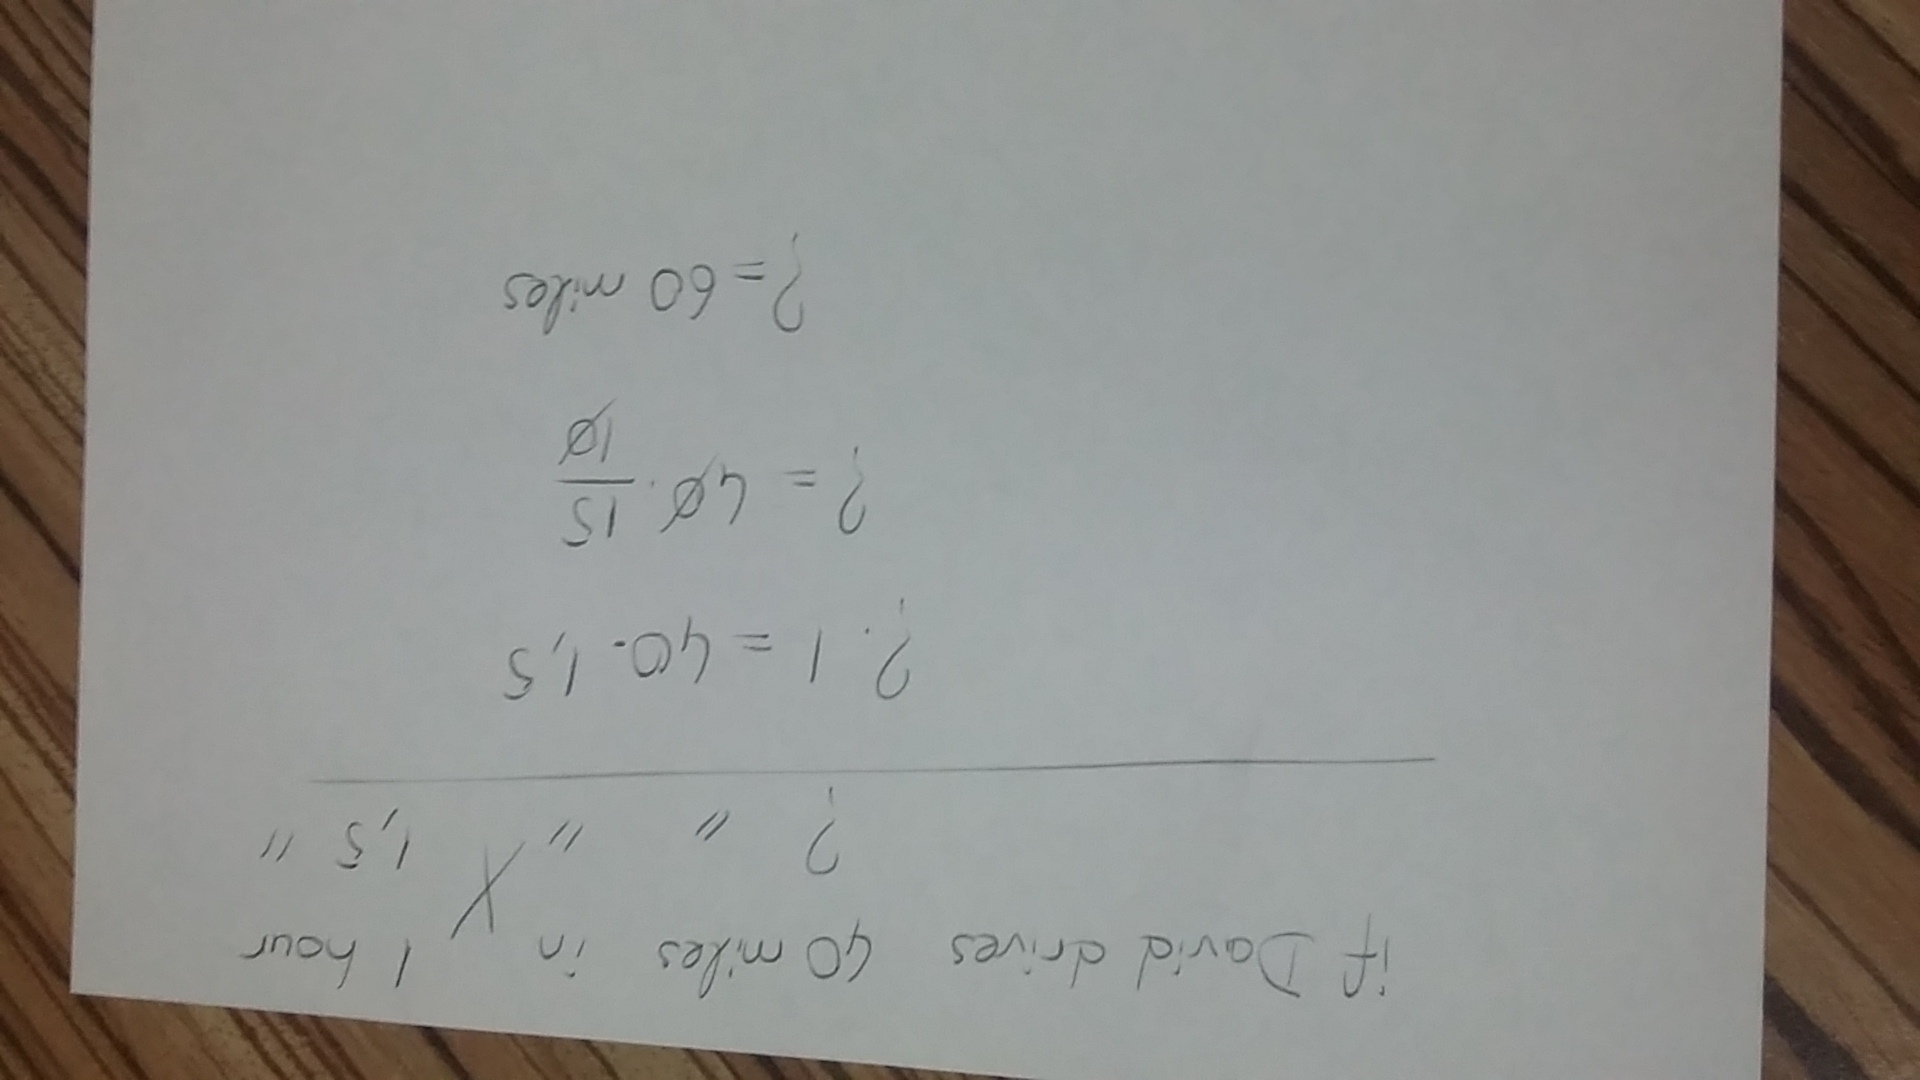 if David drives 40 miles in 1 hour
? " " X 1,5 "
?. 1 = 40. 1,5
? = 40. 15/10
? = 60 miles